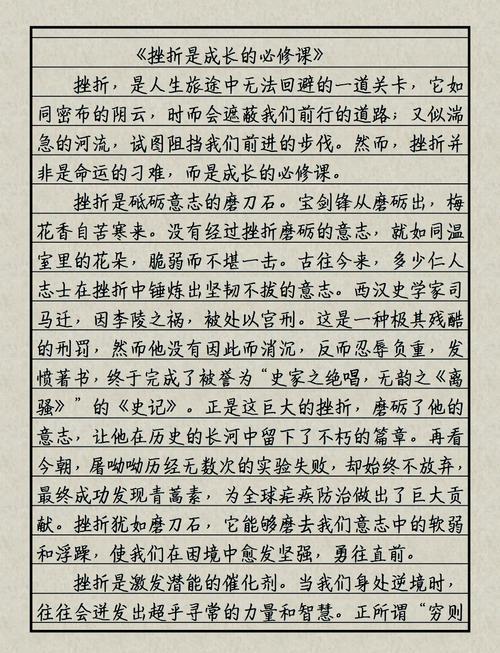 《挫折是成长的必修课》
挫折，是人生旅途中无法回避的一道关卡，它如
同密布的阴云，时而会遮蔽我们前行的道路；又似湍
急的河流，试图阻挡我们前进的步伐。然而，挫折并
非是命运的刁难，而是成长的必修课。
挫折是砥砺意志的磨刀石。宝剑锋从磨砺出，梅
花香自苦寒来。没有经过挫折磨砺的意志，就如同温
室里的花朵，脆弱而不堪一击。古往今来，多少仁人
志士在挫折中锤炼出坚韧不拔的意志。西汉史学家司
马迁，因李陵之祸，被处以宫刑。这是一种极其残酷
的刑罚，然而他没有因此而消沉，反而忍辱负重，发
愤著书，终于完成了被誉为“史家之绝唱，无韵之《离
骚》”的《史记》。正是这巨大的挫折，磨砺了他的
意志，让他在历史的长河中留下了不朽的篇章。再看
今朝，屠呦呦历经无数次的实验失败，却始终不放弃，
最终成功发现青蒿素，为全球疟疾防治做出了巨大贡
献。挫折犹如磨刀石，它能够磨去我们意志中的软弱
和浮躁，使我们在困境中愈发坚强，勇往直前。
挫折是激发潜能的催化剂。当我们身处逆境时，
往往会迸发出超乎寻常的力量和智慧。正所谓“穷则